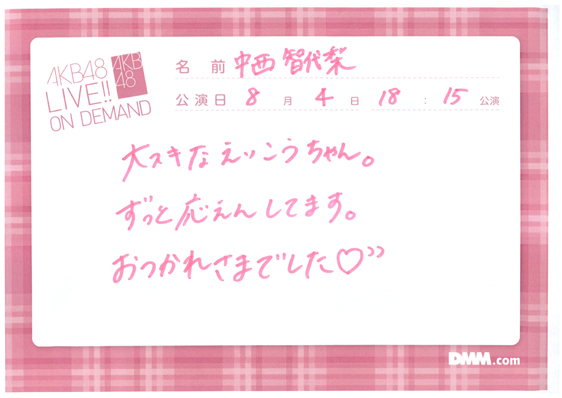 AKB48
LIVE!!
ON DEMAND
AKB
48
名前 中西智代梨
公演日 8月4日 18:15公演
大スキなえりこうちゃん。
ずっと応えんしてます。
おつかれさまでした♡
DMM.com